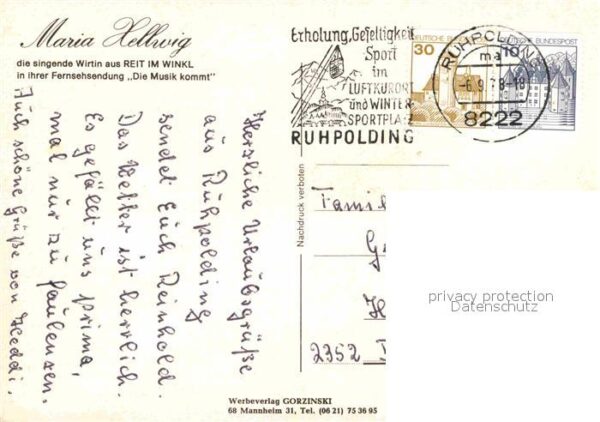 Maria Hellwig
die singende Wirtin aus REIT IM WINKL
in ihrer Fernsehsendung „Die Musik kommt"
Herzliche Urlaubsgrüße
aus Ruhpolding
sendet Euch Reinhold.
Das Wetter ist herrlich.
Es gefällt uns prima,
mal nur zu faulenzen.
Auch schöne Grüße von Heddi.
Erholung, Geselligkeit
Sport
im
LUFTKURORT
und WINTER-
SPORTPLATZ
RUHPOLDING
DEUTSCHE BUNDESPOST
30
DEUTSCHE BUNDESPOST
10
RUHPOLDING
ma
-6.9.78-18
8222
Nachdruck verboten
Famil
G
H
2352
privacy protection
Datenschutz
Werbeverlag GORZINSKI
68 Mannheim 31, Tel. (06 21) 75 36 95